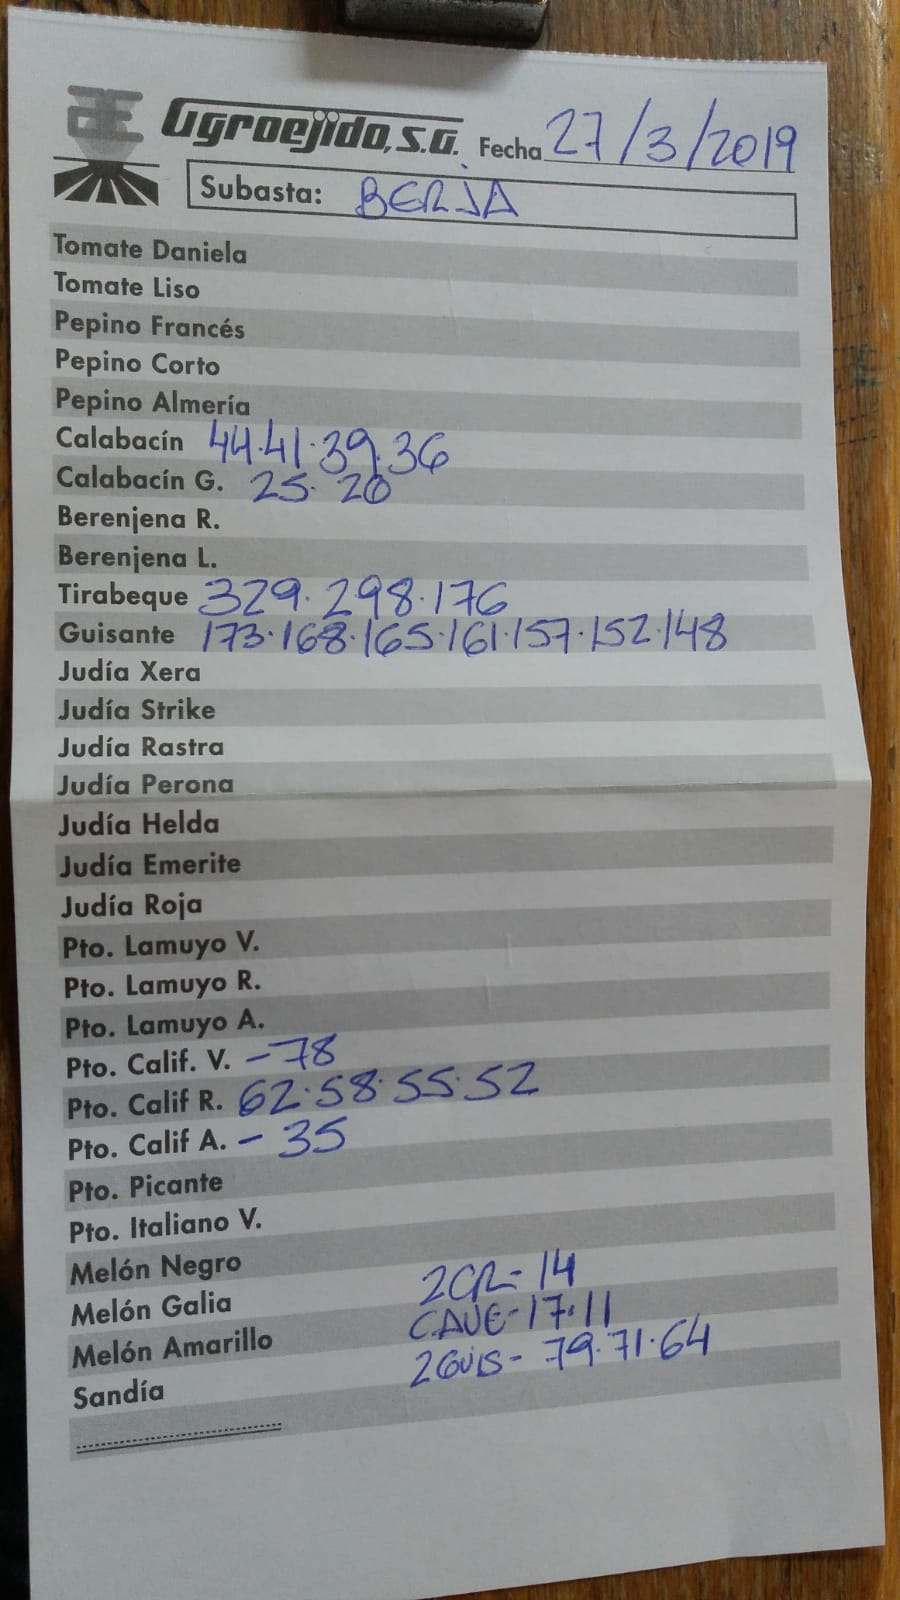 Agroejido, S.A. Fecha 27/3/2019
Subasta: BERJA
Tomate Daniela
Tomate Liso
Pepino Francés
Pepino Corto
Pepino Almería
Calabacín 44.41.39.36
Calabacín G. 25. 20
Berenjena R.
Berenjena L.
Tirabeque 329.298.176
Guisante 173.168.165.161.157.152.148
Judía Xera
Judía Strike
Judía Rastra
Judía Perona
Judía Helda
Judía Emerite
Judía Roja
Pto. Lamuyo V.
Pto. Lamuyo R.
Pto. Lamuyo A.
Pto. Calif. V. -78
Pto. Calif R. 62.58.55.52
Pto. Calif A. - 35
Pto. Picante
Pto. Italiano V.
Melón Negro
Melón Galia
Melón Amarillo
Sandía
2CR- 14
CAVE-17.11
2GUIS- 79.71.64